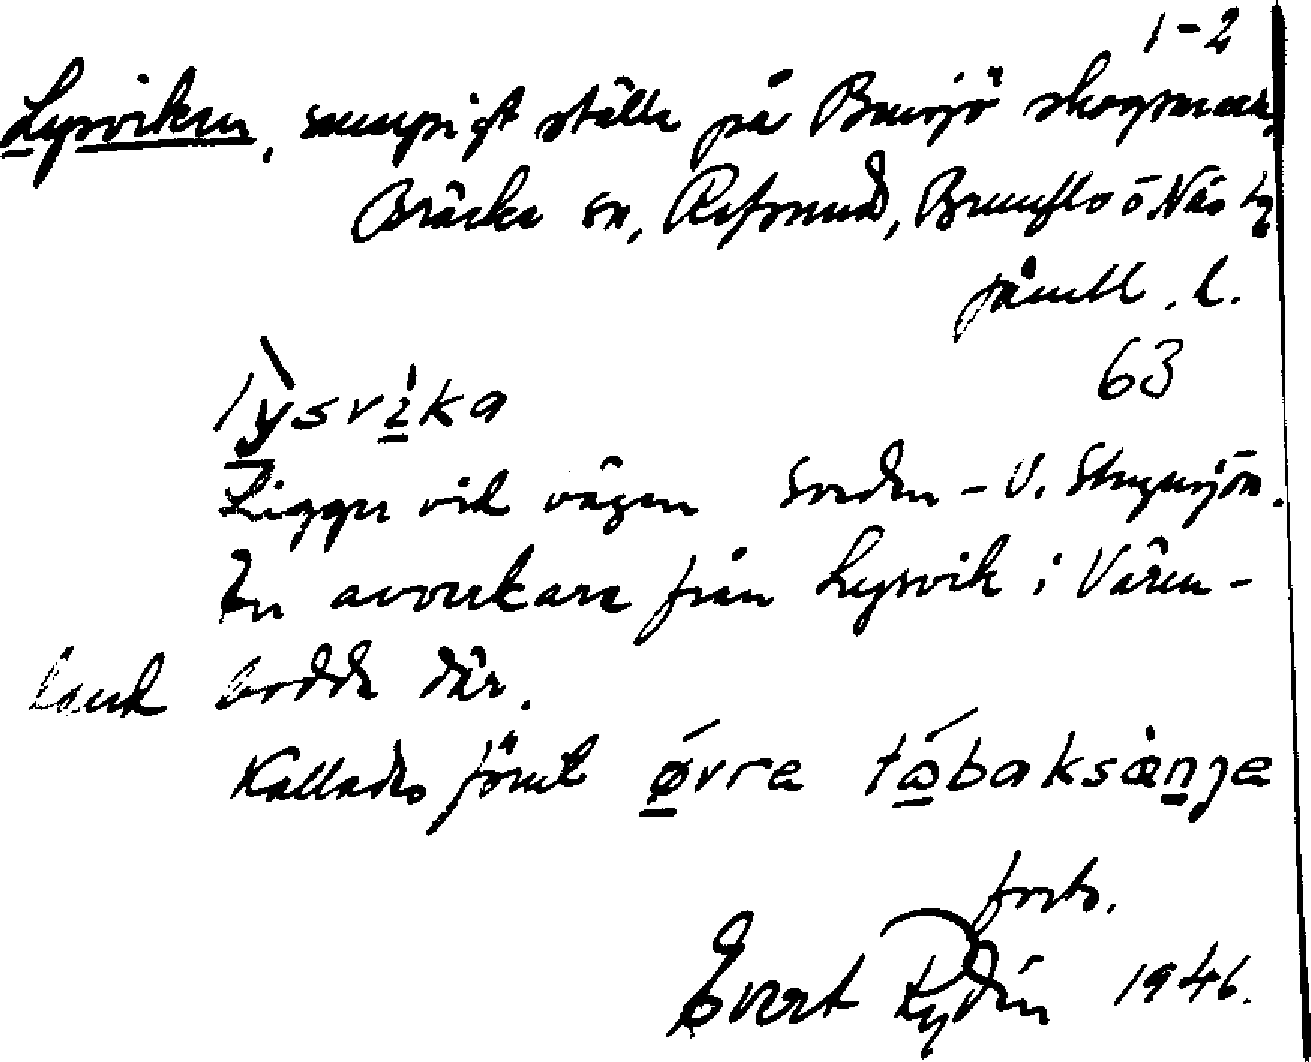 1-2
Lysviken, sumpigt ställe på Bensjö skogsmark,
Bräcke sn, Refsund, Brunflo o Näs tg
Jämtl. l.
63
lỳsvìka
Ligger vid vägen Sorden - V. Stugusjön.
En avverkare från Lysvik i Värm-
land bodde där.
Kallades förut øvre tåbaksänje
forts.
Evert Rydin 1946.